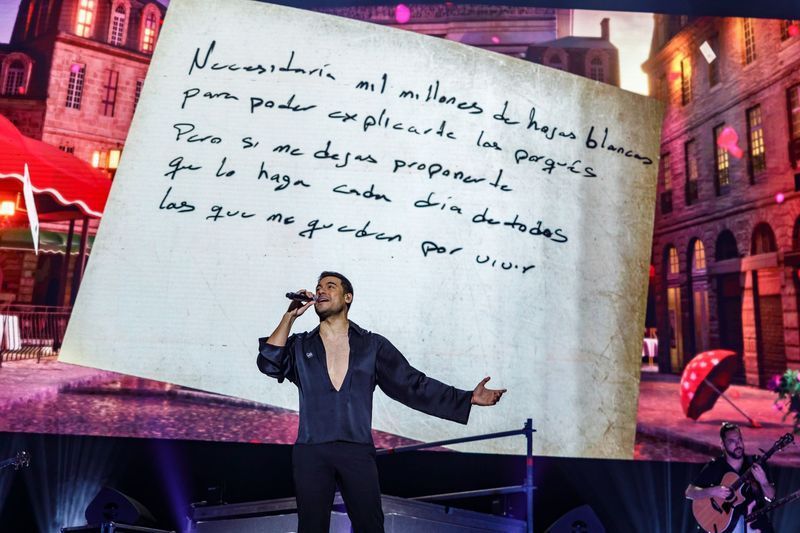 Necesidaría mil millones de hojas blancas
para poder explicarte los porqués
Pero si me dejas proponerte
que lo haga cada día de todos
los que me quedan por vivir